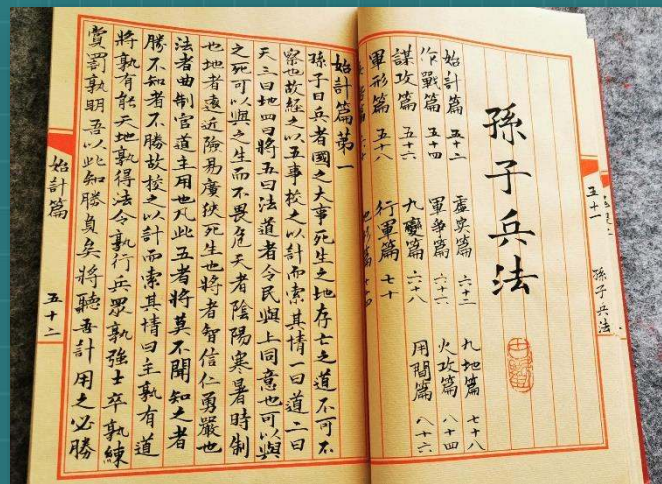 孫子兵法
五十一
孫子兵法
始計篇 五十二 虛实篇 六十二 九地篇 七十八
作戰篇 五十四 軍爭篇 六十六 火攻篇 八十四
謀攻篇 五十六 九變篇 六十八 用間篇 八十六
軍形篇 五十八 行軍篇 七十
始計篇第一
孫子曰兵者國之大事死生之地存亡之道不可不
察也故經之以五事校之以計而索其情一曰道二曰
天三曰地四曰將五曰法道者令民與上同意也可以與
之死可以與之生而不畏危天者陰陽寒暑時制
也地者遠近險易廣狹死生也將者智信仁勇嚴也
法者曲制官道主用也凡此五者將莫不聞知之者
勝不知者不勝故校之以計而索其情曰主孰有道
將孰有能天地孰得法令孰行兵眾孰強士卒孰練
賞罰孰明吾以此知勝負矣將聽吾計用之必勝
始計篇
五十二